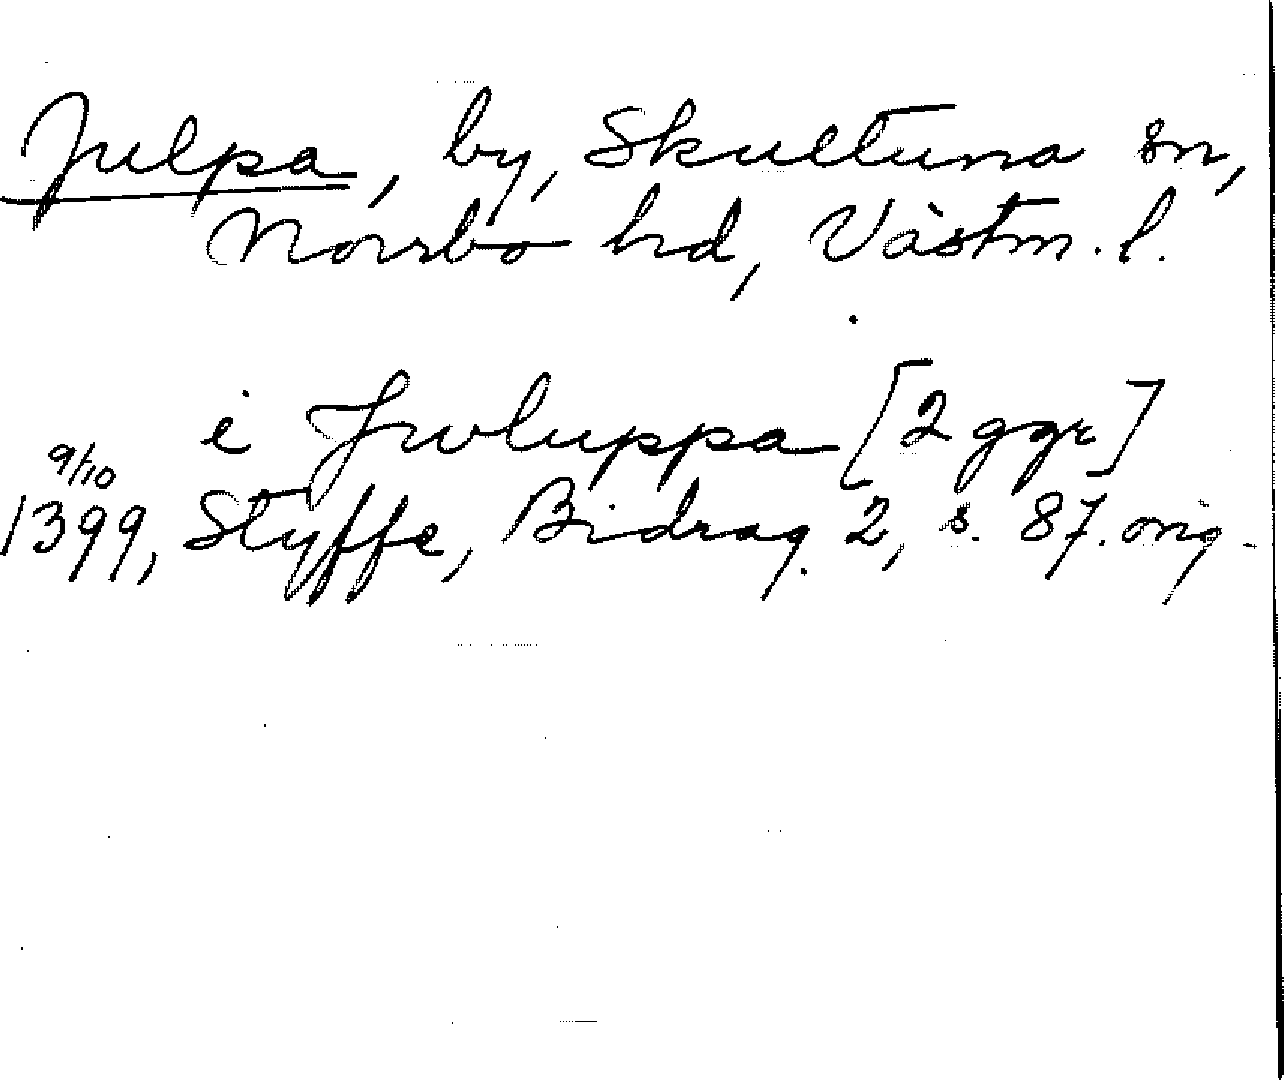 Julpa, by, Skultuna sn,
Norrbo hd, Västm. l.
i Jwluppa [2 ggr]
9/10
1399, Styffe, Bidrag 2, s. 87. orig.